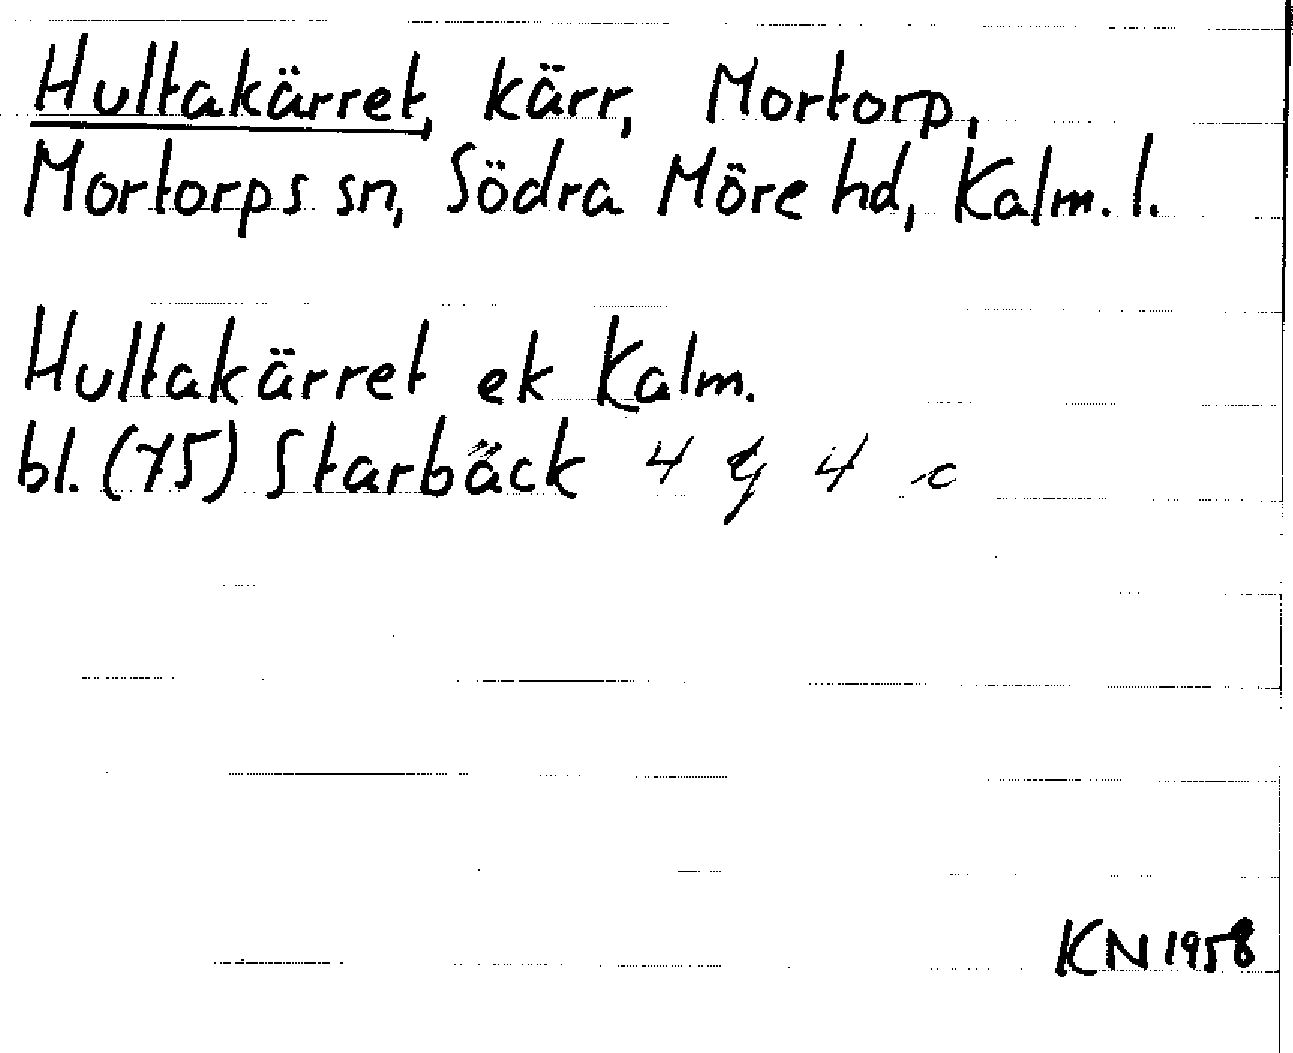 Hultakärret, kärr, Mortorp,
Mortorps sn, Södra Möre hd, Kalm. l.
Hultakärret ek Kalm.
bl. (75) Starbäck 4 g 4 c
KN 1958